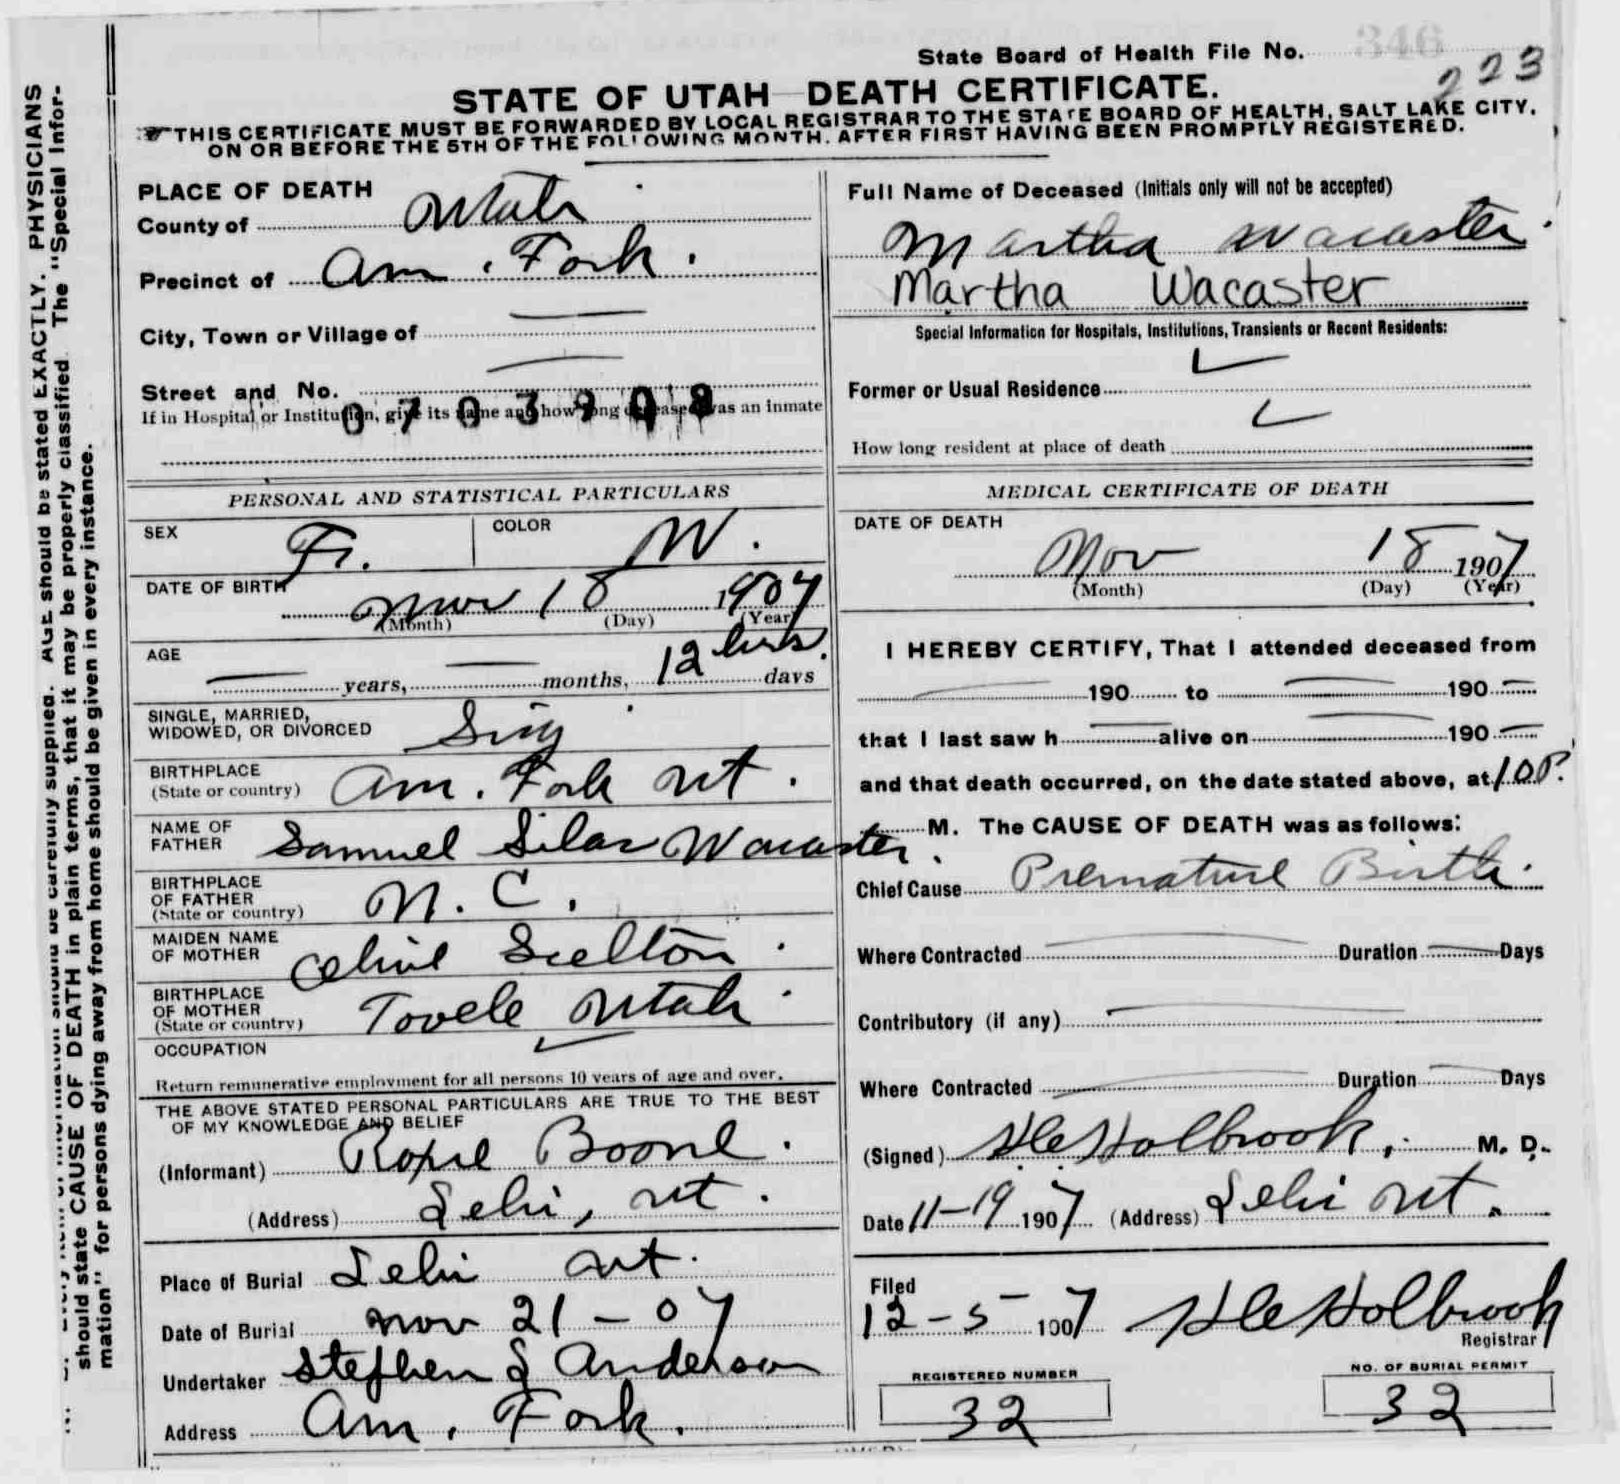 State Board of Health File No. 346
223
STATE OF UTAH—DEATH CERTIFICATE.
THIS CERTIFICATE MUST BE FORWARDED BY LOCAL REGISTRAR TO THE STATE BOARD OF HEALTH, SALT LAKE CITY,
ON OR BEFORE THE 5TH OF THE FOLLOWING MONTH, AFTER FIRST HAVING BEEN PROMPTLY REGISTERED.
PLACE OF DEATH
County of Utah
Precinct of Am. Fork.
City, Town or Village of —
Street and No. —
If in Hospital or Institution, give its name and how long deceased was an inmate
PERSONAL AND STATISTICAL PARTICULARS
SEX F.
COLOR W.
DATE OF BIRTH Nov 18 1907
(Month) (Day) (Year)
AGE
— years, — months, 12 hrs. days
SINGLE, MARRIED,
WIDOWED, OR DIVORCED Sing
BIRTHPLACE
(State or country) Am. Fork Ut.
NAME OF
FATHER Samuel Silas Wacaster.
BIRTHPLACE
OF FATHER
(State or country) N. C.
MAIDEN NAME
OF MOTHER
BIRTHPLACE
OF MOTHER
(State or country) Tooele Utah.
OCCUPATION
Return remunerative employment for all persons 10 years of age and over.
THE ABOVE STATED PERSONAL PARTICULARS ARE TRUE TO THE BEST
OF MY KNOWLEDGE AND BELIEF
(Informant) Roxie Boone.
(Address) Lehi, Ut.
Place of Burial Lehi Ut.
Date of Burial Nov 21-07
Undertaker Stephen L Anderson
Address Am. Fork.
Full Name of Deceased (Initials only will not be accepted)
Martha Wacaster.
Martha Wacaster
Special Information for Hospitals, Institutions, Transients or Recent Residents:
Former or Usual Residence
How long resident at place of death
MEDICAL CERTIFICATE OF DEATH
DATE OF DEATH
Nov 18 1907
(Month) (Day) (Year)
I HEREBY CERTIFY, That I attended deceased from
— 190 to — 190 —
that I last saw h — alive on — 190 —
and that death occurred, on the date stated above, at 10 P.
M. The CAUSE OF DEATH was as follows:
Chief Cause Premature Birth.
Where Contracted — Duration — Days
Contributory (if any) —
Where Contracted — Duration — Days
(Signed) Holbrook, M. D.
Date 11-19 1907 (Address) Lehi Ut.
Filed
12-5 1907 Holbrook
Registrar
REGISTERED NUMBER
32
NO. OF BURIAL PERMIT
32
information should be carefully supplied. AGE should be stated EXACTLY. PHYSICIANS
should state CAUSE OF DEATH in plain terms, that it may be properly classified. The "Special Infor-
mation" for persons dying away from home should be given in every instance.